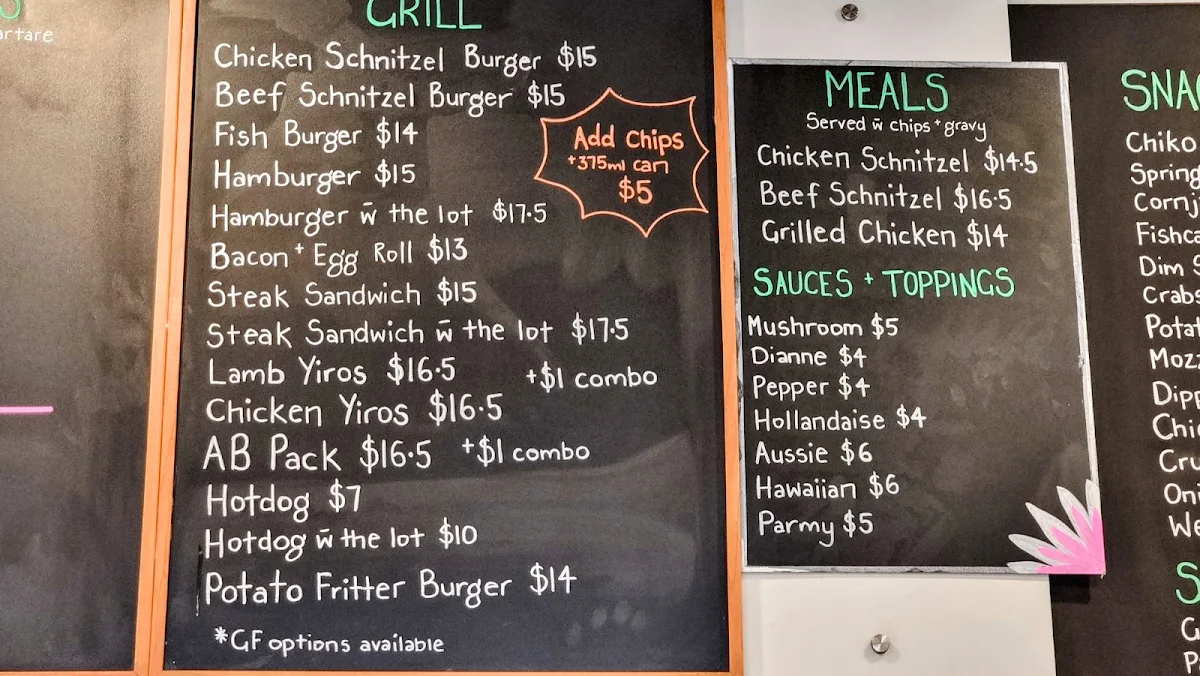 artare
GRILL
Chicken Schnitzel Burger $15
Beef Schnitzel Burger $15
Fish Burger $14
Hamburger $15
Hamburger w̄ the lot $17.5
Bacon + Egg Roll $13
Steak Sandwich $15
Steak Sandwich w̄ the lot $17.5
Lamb Yiros $16.5
+$1 combo
Chicken Yiros $16.5
AB Pack $16.5 +$1 combo
Hotdog $7
Hotdog w̄ the lot $10
Potato Fritter Burger $14
*GF options available
Add Chips
+375ml can
$5
MEALS
Served w̄ chips + gravy
Chicken Schnitzel $14.5
Beef Schnitzel $16.5
Grilled Chicken $14
SAUCES + TOPPINGS
Mushroom $5
Dianne $4
Pepper $4
Hollandaise $4
Aussie $6
Hawaiian $6
Parmy $5
SNA
Chiko
Spring
Cornj
Fishca
Dim S
Crabs
Potat
Mozz
Dipp
Chic
Cru
Oni
We
S